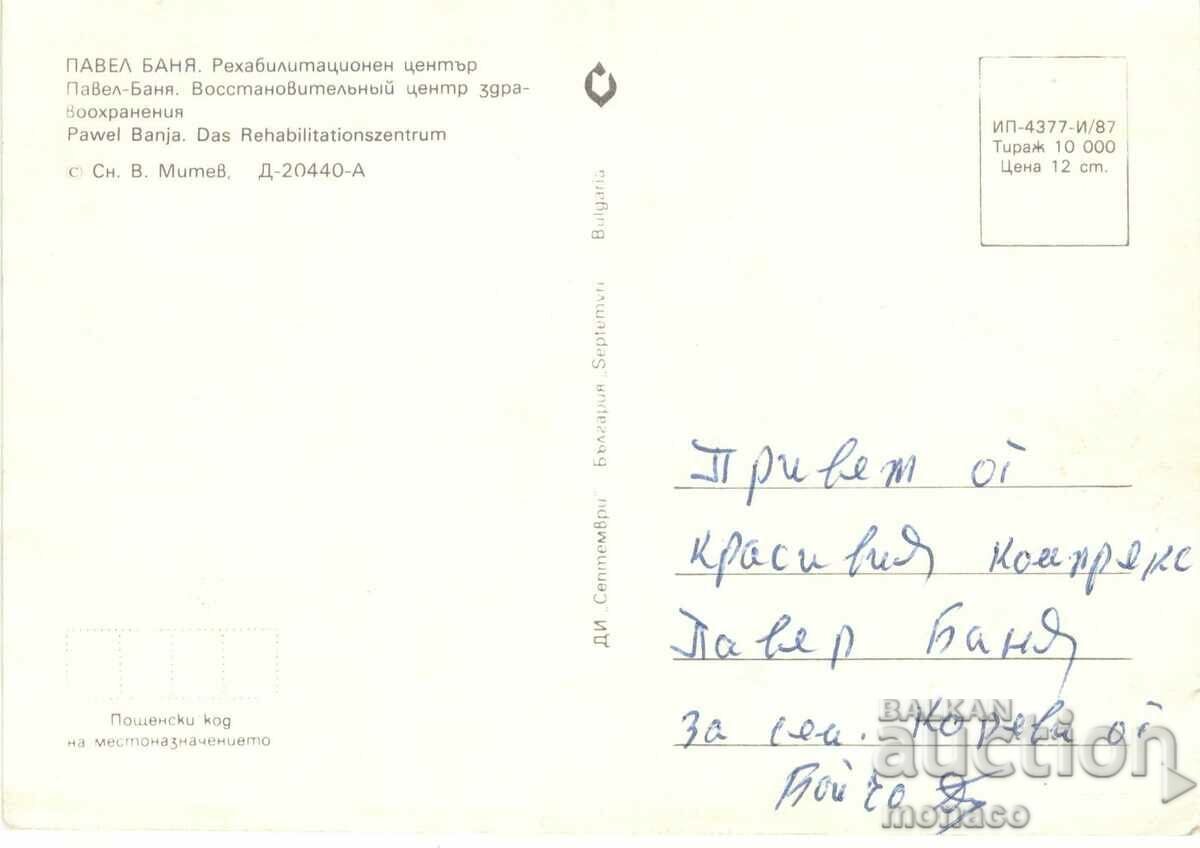 ПАВЕЛ БАНЯ. Рехабилитационен център
Павел-Баня. Восстановительный центр здра-
воохранения
Pawel Banja. Das Rehabilitationszentrum
© Сн. В. Митев, Д-20440-А
ИП-4377-И/87
Тираж 10 000
Цена 12 ст.
ДИ „Септември" България „Septemvri Bulgaria
Привет от
красивия комплекс
Павел Баня
за сем. от
Бойчо
Пощенски код
на местоназначението
BALKAN
auction
monaco